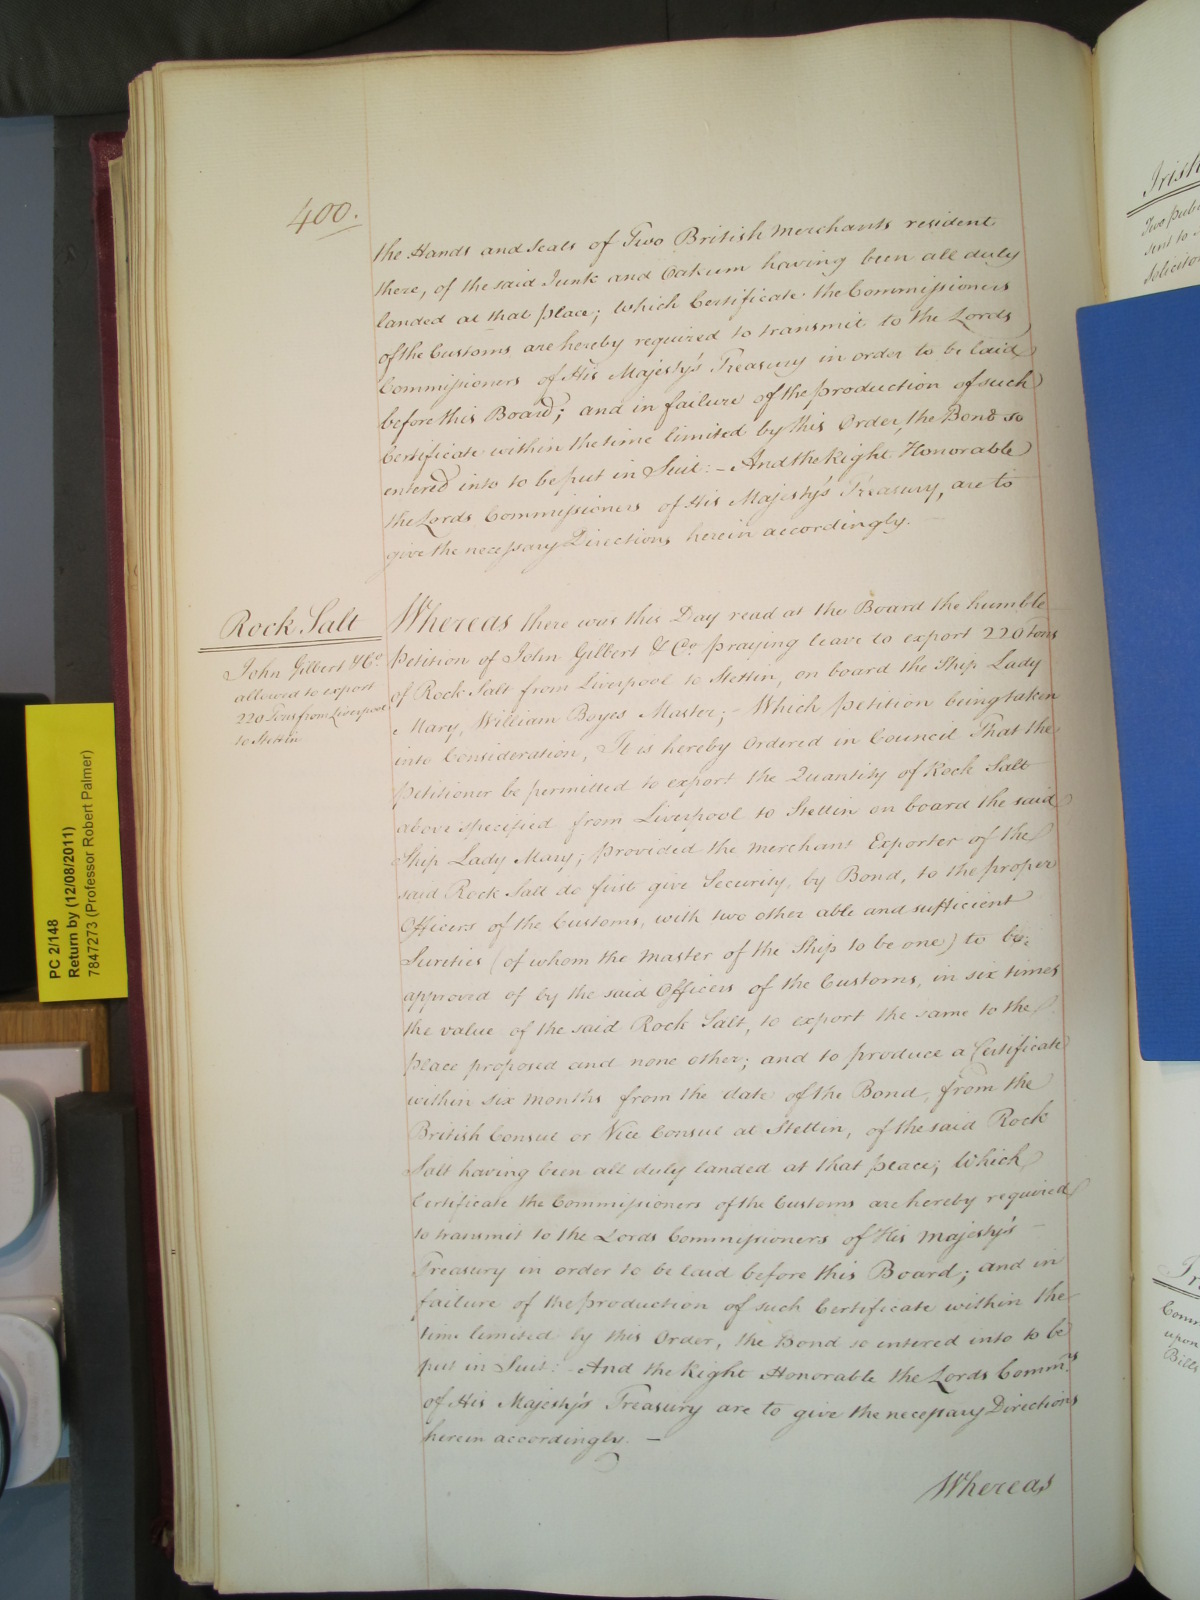 400.
the Hands and Seals of Two British Merchants resident
there, of the said Junk and Oakum having been all duly
landed at that place; Which Certificate the Commissioners
of the Customs are hereby required to transmit to the Lords
Commissioners of His Majesty's Treasury in order to be laid
before this Board; and in failure of the production of such
Certificate within the time limited by this Order, the Bond so
entered into to be put in Suit: - And the Right Honorable
the Lords Commissioners of His Majesty's Treasury, are to
give the necessary Directions herein accordingly. -
Rock Salt
John Gilbert & Co.
allowed to export
220 Tons from Liverpool
to Stettin
Whereas there was this Day read at the Board the humble
Petition of John Gilbert & Co. praying leave to export 220 Tons
of Rock Salt from Liverpool to Stettin, on board the Ship Lady
Mary, William Boyes Master; - Which petition being taken
into Consideration, It is hereby Ordered in Council That the
Petitioner be permitted to export the Quantity of Rock Salt
above specified from Liverpool to Stettin on board the said
Ship Lady Mary; provided the Merchant Exporter of the
said Rock Salt do first give Security, by Bond, to the proper
Officers of the Customs, with two other able and sufficient
Sureties (of whom the Master of the Ship to be one) to be
approved of by the said Officers of the Customs, in six times
the value of the said Rock Salt, to export the same to the
place proposed and none other; and to produce a Certificate
within six months from the date of the Bond, from the
British Consul or Vice Consul at Stettin, of the said Rock
Salt having been all duly landed at that place; Which
Certificate the Commissioners of the Customs are hereby required
to transmit to the Lords Commissioners of His Majesty's -
Treasury in order to be laid before this Board; and in
failure of the production of such Certificate within the
time limited by this Order, the Bond so entered into to be
put in Suit: - And the Right Honorable the Lords Commrs.
of His Majesty's Treasury are to give the necessary Directions
herein accordingly. -
Whereas
PC 2/148
Return by (12/08/2011)
7847273 (Professor Robert Palmer)
Irish
sent to
Solicitor
upon
Bills